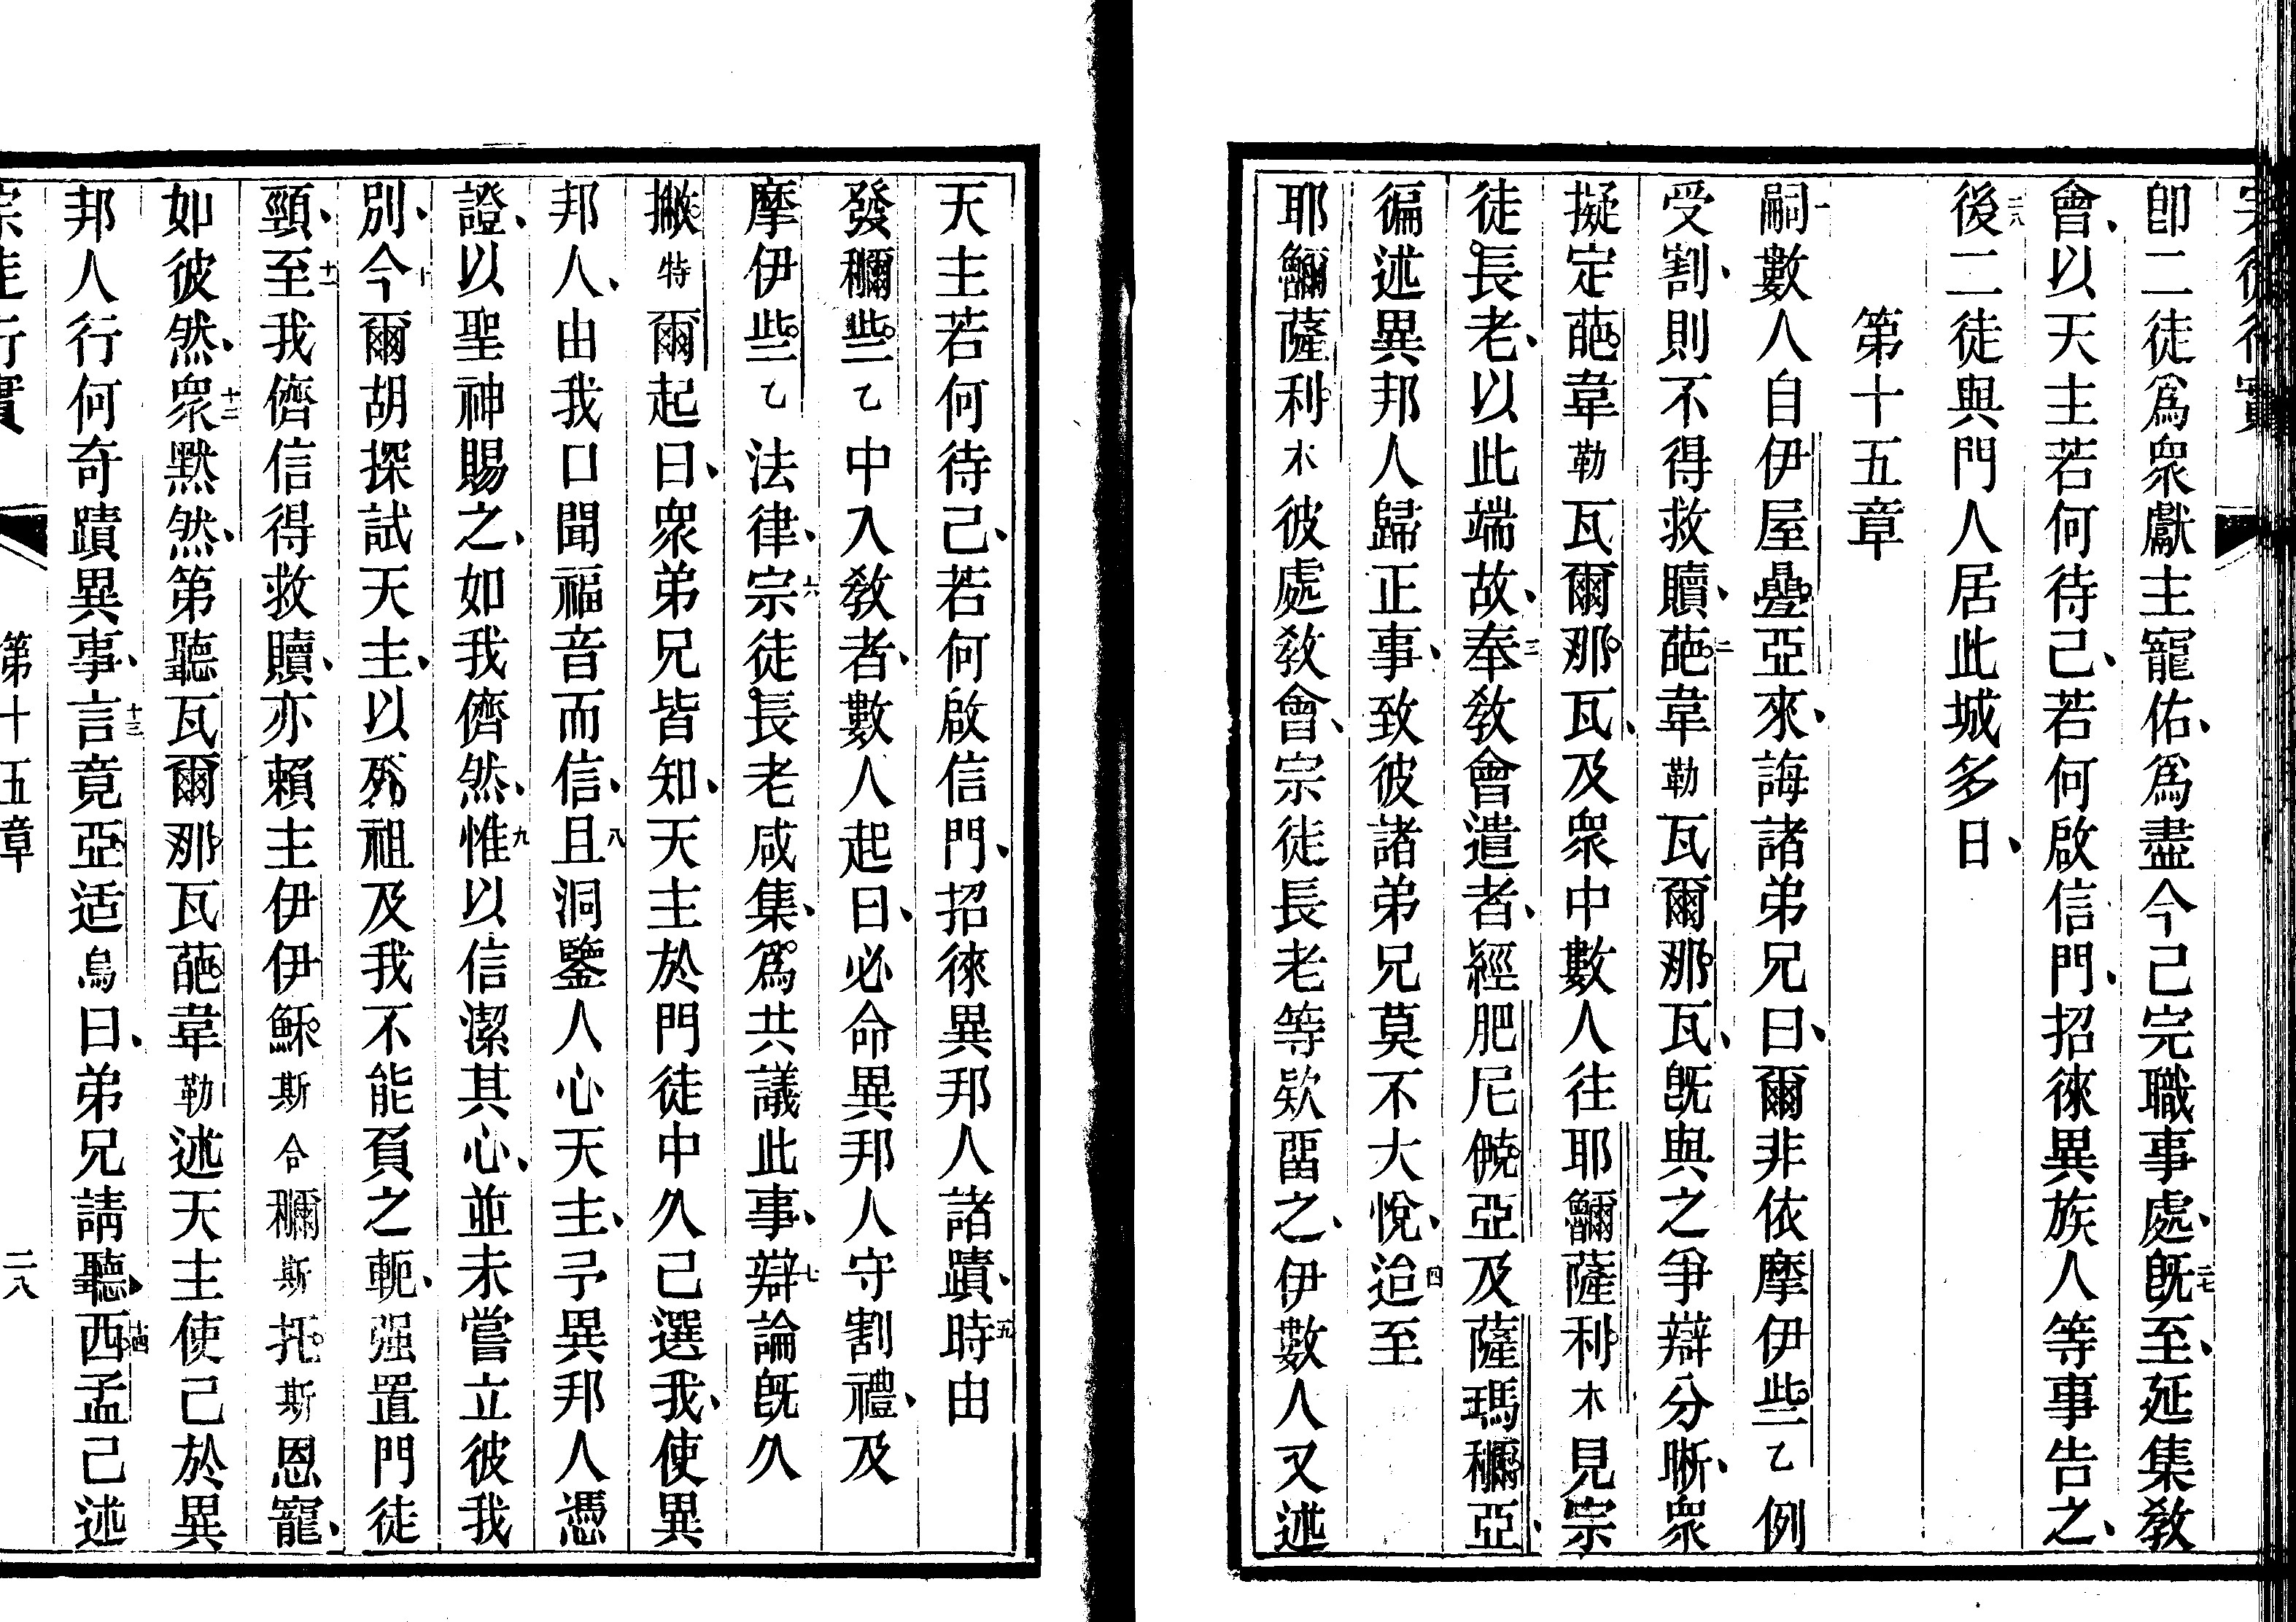 卽二徒爲衆獻主寵佑、爲盡今己完職事處、二七旣至、延集敎
會、以天主若何待己、若何啟信門、招徠異族人等事告之、
二八後二徒與門人居此城多日、
第十五章
一嗣數人自伊屋疊亞來、誨諸弟兄曰、爾非依摩伊些乙例
受割、則不得救贖、二葩韋勒瓦爾那瓦、旣與之爭辯分晣、衆
擬定葩韋勒瓦爾那瓦、及衆中數人往耶鱺薩利木見宗
徒長老、以此端故、三奉敎會遣者、經肥尼僥亞及薩瑪穪亞、
徧述異邦人歸正事、致彼諸弟兄莫不大悅、四迨至
耶鱺薩利木彼處敎會、宗徒長老等欵畱之、伊數人又述
天主若何待己、若何啟信門、招徠異邦人諸蹟、五時由
發穪些乙中入敎者、數人起曰、必命異邦人守割禮、及
摩伊些乙法律、六宗徒長老咸集、爲共議此事、七辯論旣久
撇特爾起曰、衆弟兄皆知、天主於門徒中久己選我、使異
邦人、由我口聞福音而信、八且洞鑒人心天主、予異邦人憑
證、以聖神賜之、如我儕然、九惟以信潔其心、並未嘗立彼我
別、十今爾胡探試天主、以死祖及我不能負之軛、强置門徒
頸、十一至我儕信得救贖、亦賴主伊伊穌斯合穪斯托斯恩寵、
如彼然、十二衆默然、第聽瓦爾那瓦葩韋勒述天主使己於異
邦人行何奇蹟異事、十三言竟亞适烏曰、弟兄請聽、十四西孟己述
第十五章 二八